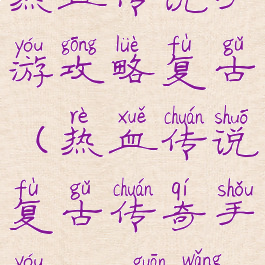 yóu gōng lüè fù gǔ
游攻略复古
rè xuě chuán shuō
（热血传说
fù gǔ chuán qí shǒu
复古传奇手
yóu guān wǎng